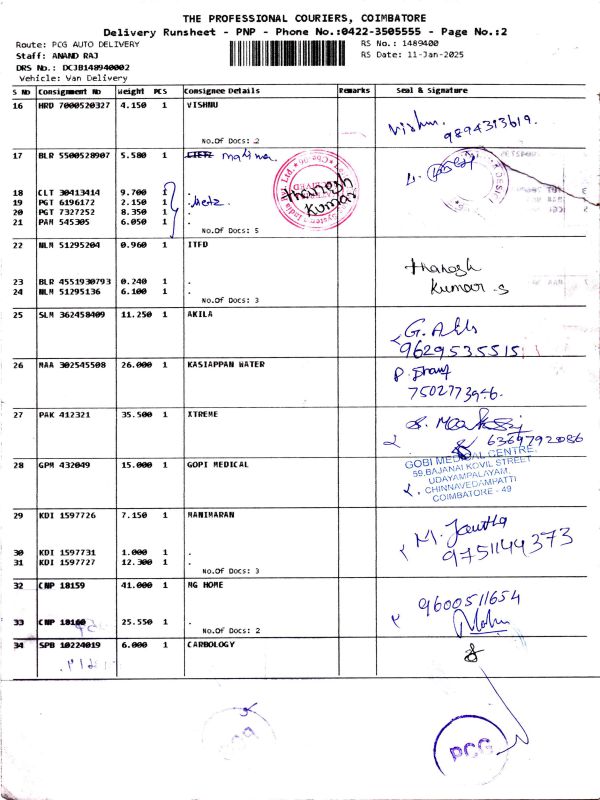 THE PROFESSIONAL COURIERS, COIMBATORE
Delivery Runsheet - PNP - Phone No.:0422-3505555 - Page No.:2
Route: PCG AUTO DELIVERY RS No.: 1489400
Staff: ANAND RAJ RS Date: 11-Jan-2025
DRS No.: DCJB148940002
Vehicle: Van Delivery
S No Consignment No Weight PCS Consignee Details Remarks Seal & Signature
16 HRD 7000520327 4.150 1 VISHNU
Vishnu.
9894313619.
No.Of Docs: 2
17 BLR 5500528907 5.580 1
18 CLT 30413414 9.700 1 .
19 PGT 6196172 2.150 1 Metz
20 PGT 7327252 8.350 1 .
21 PAM 545305 6.050 1 .
Thanesh
Kumar
No.Of Docs: 5
22 NLM 51295204 0.960 1 ITFD
Thanesh
Kumar.s
23 BLR 4551930793 0.240 1 .
24 NLM 51295136 6.100 1 .
No.Of Docs: 3
25 SLM 362458409 11.250 1 AKILA
9629535515
26 MAA 302545508 26.000 1 KASIAPPAN WATER
7502773946.
27 PAK 412321 35.500 1 XTREME
6369792086
28 GPM 432049 15.000 1 GOPI MEDICAL
GOBI MEDICAL CENTRE.
59,BAJANAI KOVIL STREET
UDAYAMPALAYAM,
CHINNAVEDAMPATTI
COIMBATORE - 49
29 KDI 1597726 7.150 1 MANIMARAN
9751144373
30 KDI 1597731 1.000 1 .
31 KDI 1597727 12.300 1 .
No.Of Docs: 3
32 CNP 18159 41.000 1 MG HOME
9600511654
33 CNP 18160 25.550 1 .
No.Of Docs: 2
34 SPB 10224019 6.000 1 CARBOLOGY
PCG